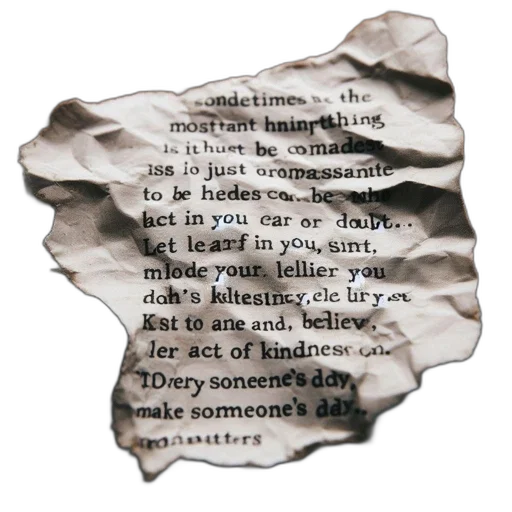 sondetimes the
mosttant hninptthing
is it hust be comades
iss io just oromassante
to be hedes cor.. be
lact in you ear or doubt...
Let learf in you, sint,
mlode your. lellier you
dah's kiltesincy, ele
Kst to ane and, believ,
ler act of kindness cn.
TDrery soneene's ddy,
make somneone's ddy..